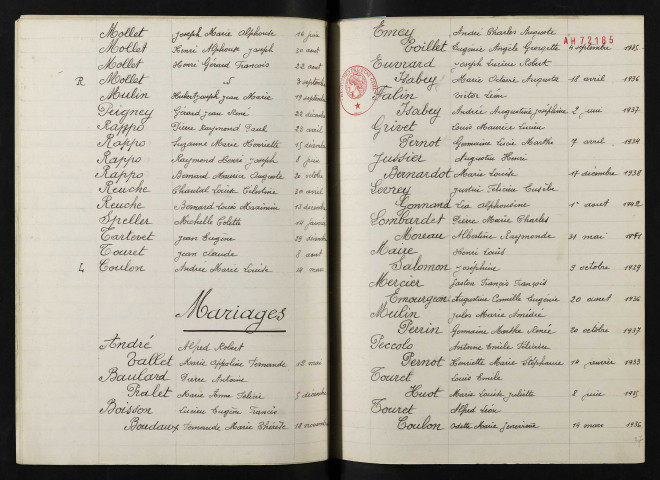 Mollet Joseph Marie Alphonse 16 juin
Mollet Henri Alphonse Joseph 20 août
Mollet Henri Gérard François 22 août
R Mollet d° 3 septembre
Mulin Hubert Joseph Jean Marie 19 septembre
Peigney Gérard Jean René 22 décembre
Rappo Pierre Raymond Paul 23 avril
Rappo Suzanne Marie Henriette 15 décembre
Rappo Raymond Henri Joseph 8 juin
Rappo Bernard Maurice Auguste 20 octobre
Reuche Chantal Louise Célestine 20 avril
Reuche Bernard Louis Maximin 13 décembre
Speller Michelle Colette 14 janvier
Tartoret Jean Eugène 29 décembre
Touret Jean Claude 8 août
4 Coulon Andrée Marie Louise 10 mars
Mariages
André Alfred Robert
Vallet Marie Appoline Fernande 12 mai
Baulard Pierre Antoine
Pralet Marie Anna Félicie 5 décembre
Boisson Lucien Eugène Francis
Boudaux Fernande Marie Thérèse 18 novembre
Emey André Charles Auguste
AH72165
Coillet Eugenie Angèle Georgette 4 septembre 1925
Euvrard Joseph Lucien Robert
Isabey Marie Octavie Augusta 18 avril 1936
Falin Victor Léon
Isabey Andrée Augustine Joséphine 2 juin 1937
Grivet Louis Maurice Lucien
Pernot Germaine Lucie Marthe 7 avril 1934
Jussier Augustin Henri
Bernardot Marie Louise 17 décembre 1938
Gevrey Justin Félicien Eusèbe
Lonnand Léa Alphonsine 1er août 1942
Lombardet Pierre Marie Charles
Moreau Albertine Raymonde 31 mai 1941
Maire Henri Louis
Salomon Joséphine 3 octobre 1929
Mercier Gaston François François
Emourgeon Augustine Camille Eugenie 20 août 1936
Mulin Jules Marie Amédée
Perrin Germaine Marthe Renée 20 octobre 1937
Peccolo Antoine Emile Félicien
Pernot Henriette Marie Stéphanie 14 janvier 1933
Touret Louis Emile
Huot Marie Louise Juliette 8 juin 1925
Touret Alfred Léon
Coulon Odette Marie Geneviève 14 mars 1936